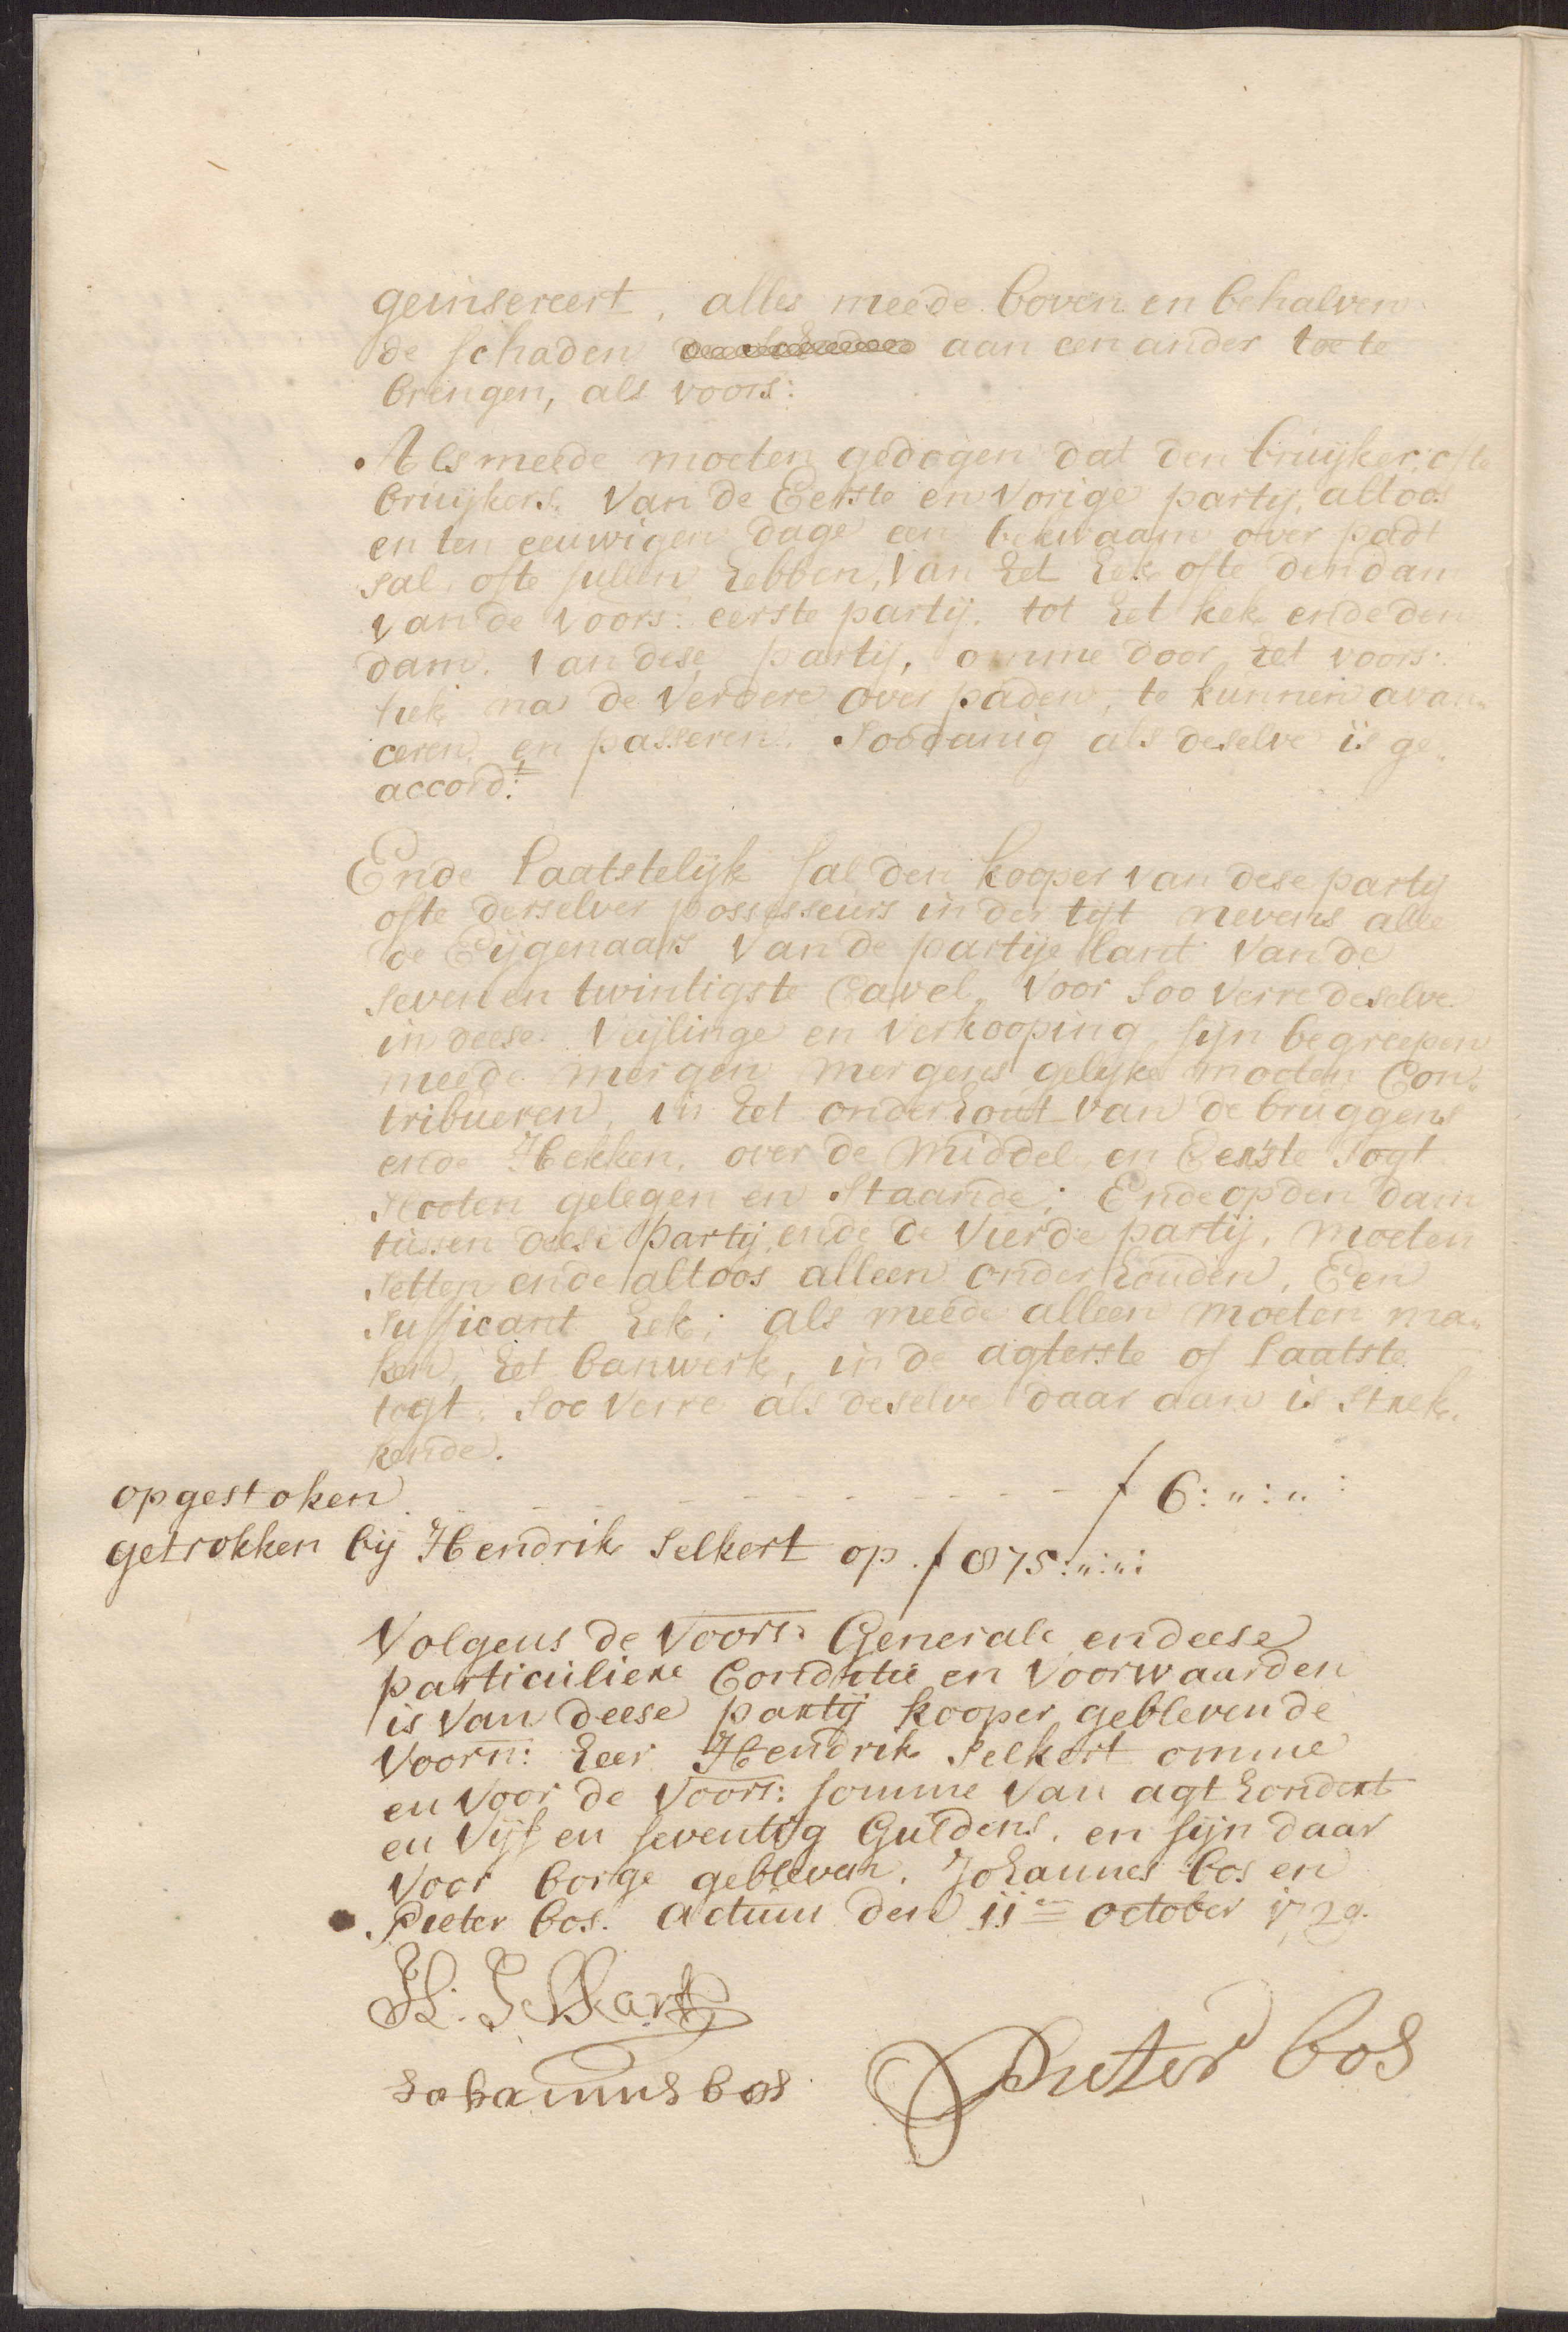 geinsereert, alles meede boven en behalven
de schaden aan een ander toe te
brengen, als voors:
Als meede moeten gedogen dat den bruijker, ofte
bruijkers. van de Eerste en vorige partij, altoos
en ten eeuwigen dage een bekwaam over padt
sal, ofte sullen hebben, van het hek ofte den dam
van de voors: eerste partij. tot het hek ende den
dam. van dese partij, omme door het voors:
hek na de verdere over paden, te kunnen avan„
ceren, en passeren. Soodanig als deselve is ge„
accord:t
Ende laatstelijk sal den kooper van dese partij
ofte derselver possesseurs in der tijt nevens alle
de Eijgenaars van de partije lant van de
seven en twintigste Cavel, voor soo verre deselve
in deese veijlinge en verkooping sijn begreepen
meede mergen mergens gelijke moeten Con„
tribueren, in het onderhout van de bruggens
ende Hekken. over de Middel en Eerste togt
slooten gelegen en staande; Ende op den dam
tussen deese partij, ende de vierde partij, moeten
setten ende altoos alleen onderhouden, Een
suffisant hek; als meede alleen moeten ma„
ken, het banwerk, in de agterste of laatste
togt, soo verre als deselve daar aan is strek„
kende.
opgestoken - - - - - - - - - - f 6:„:„:
getrokken bij Hendrik Selkert op f 875:„:„:
Volgens de voors: Generale en deese
particuliere Conditie en voorwaarden
is van deese partij kooper gebleven de
voorn: heer Hendrik Selkert omme
en voor de voors: somme van agt hondert
en vijf en seventig Guldens. en sijn daar
voor borge gebleven. Johannes bos en
Pieter bos. Actum den 11en october 1729.
H. Selkart
Johannes bos
Pieter bos